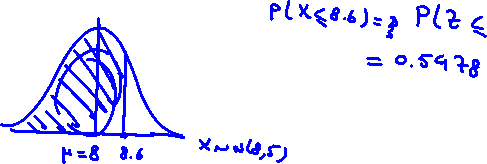 P(X≤8.6) = P(Z ≤
= 0.5478
μ=8 8.6 X~N(8,5)